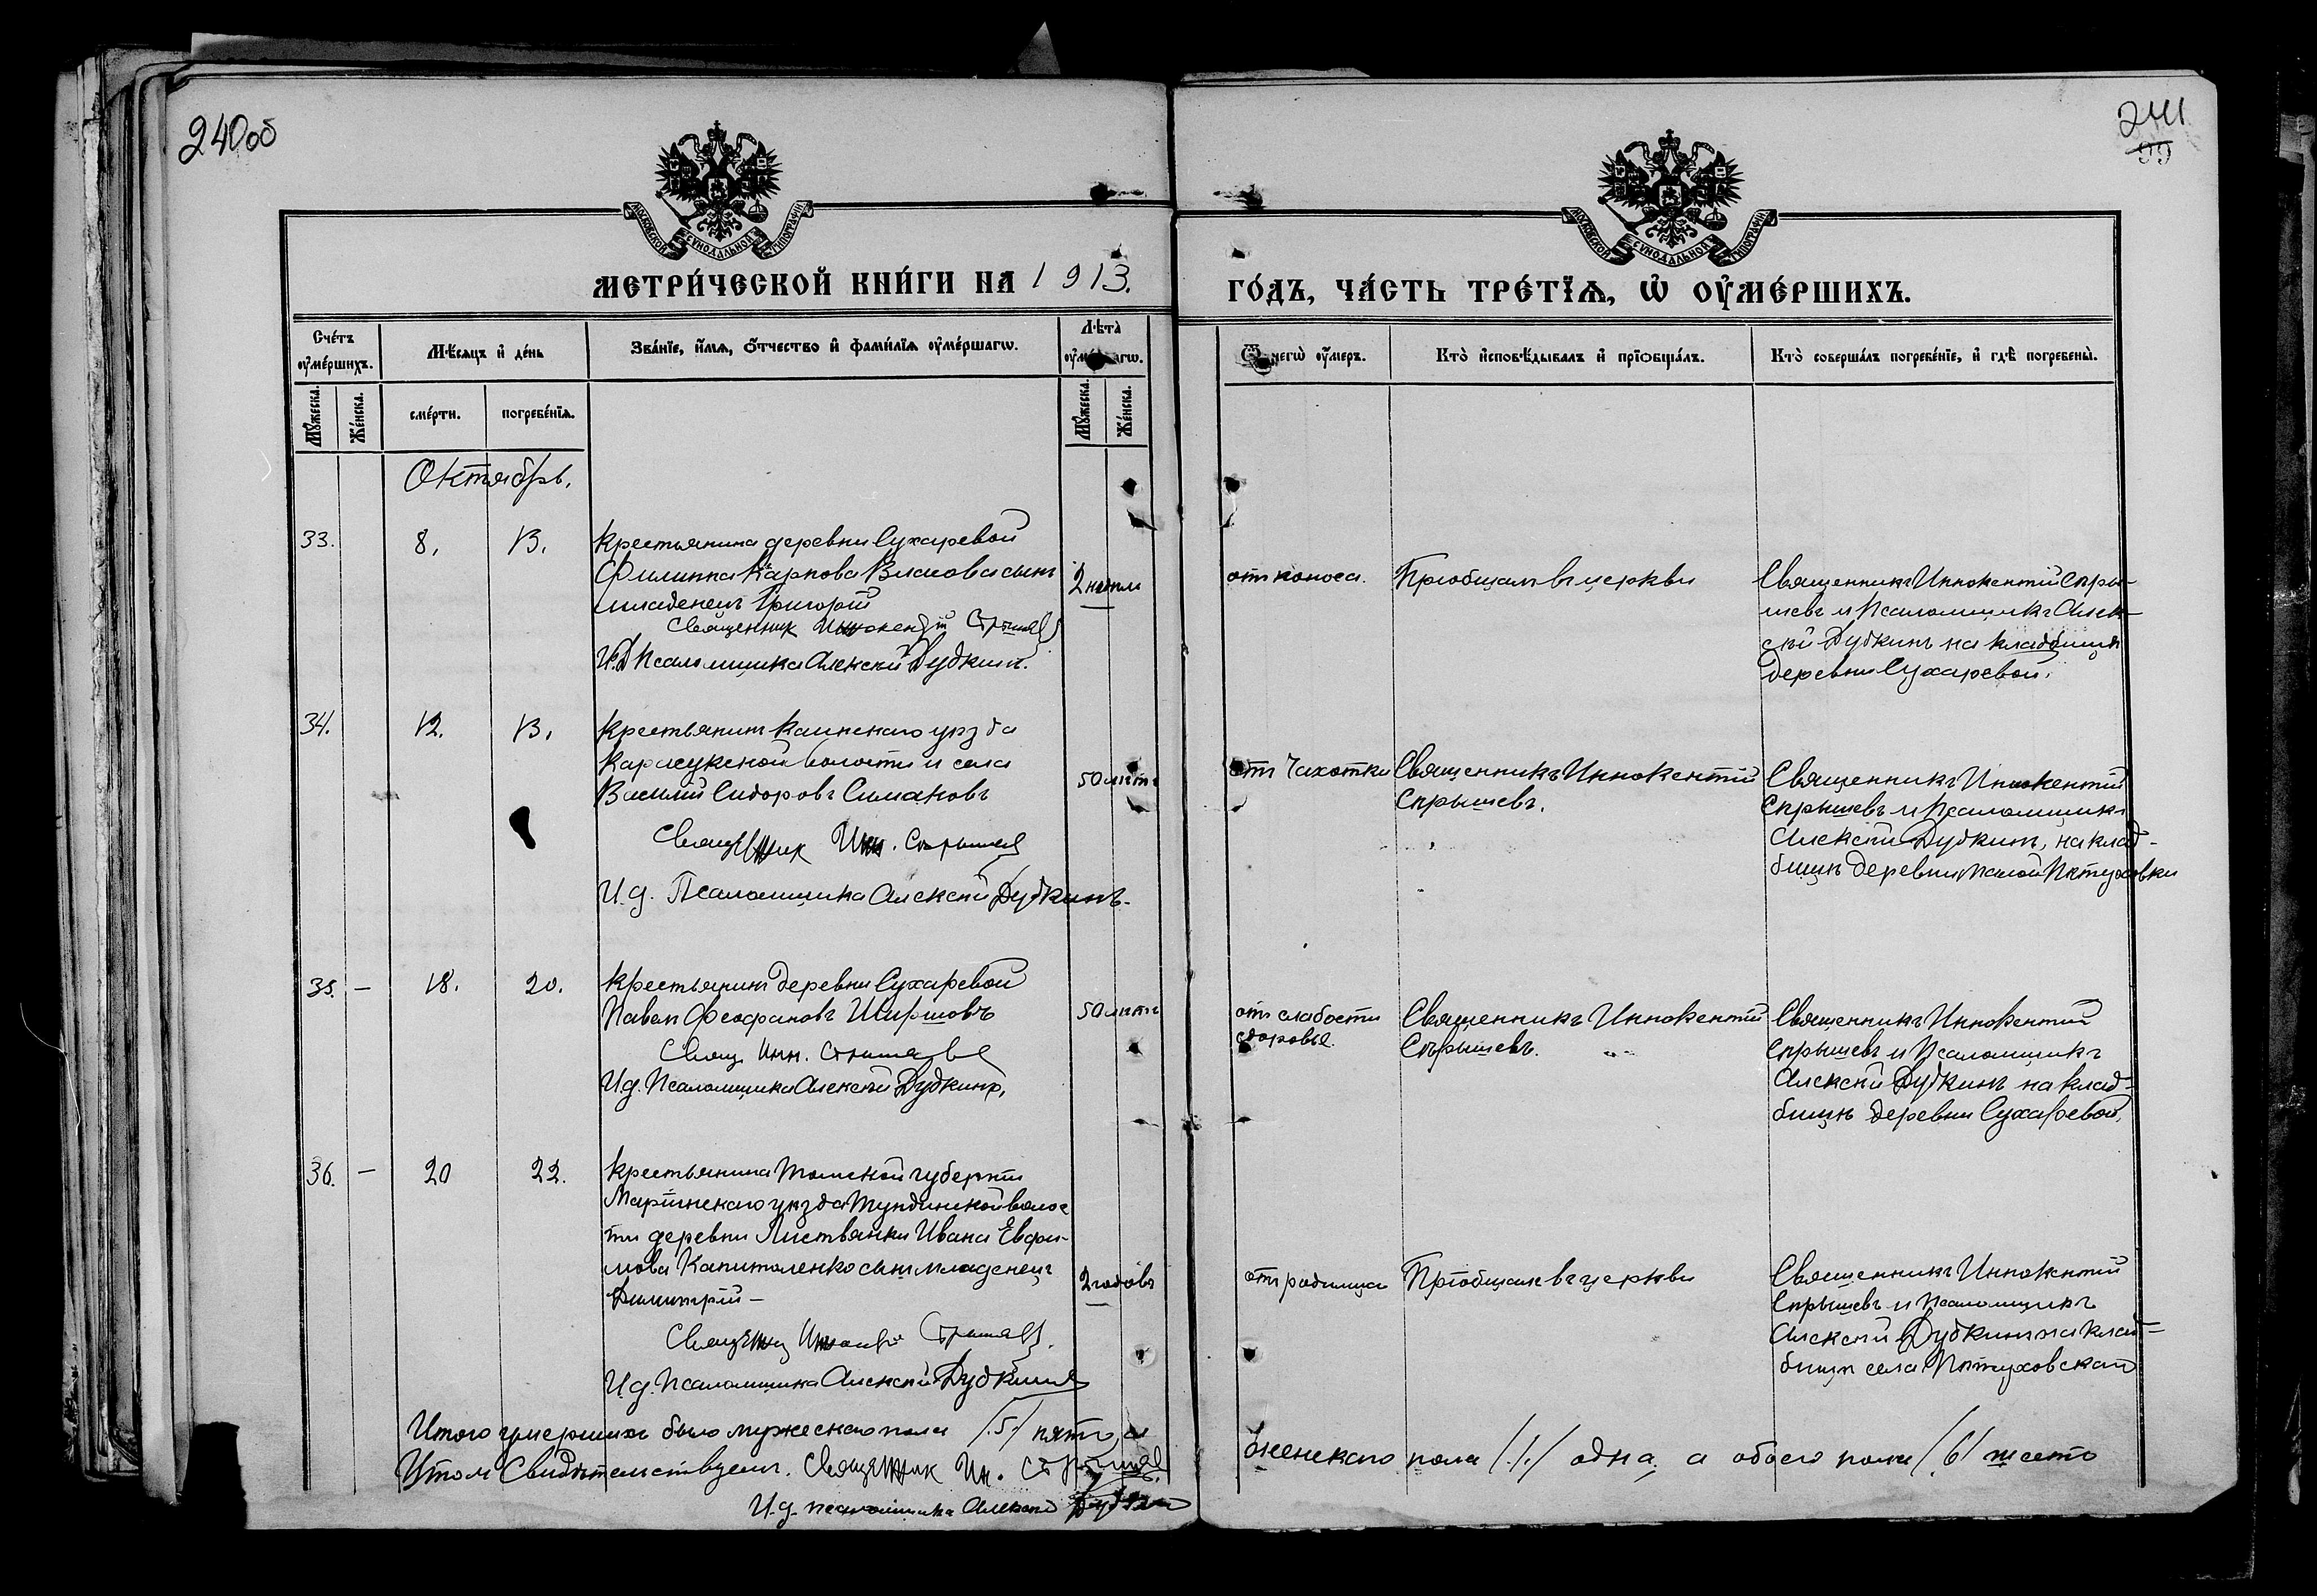 240об
241
99
МОСКОВСКОЙ СУНОДАЛЬНОЙ ТИПОГРАФІИ
МОСКОВСКОЙ СУНОДАЛЬНОЙ ТИПОГРАФІИ
МЕТРИ́ЧЕСКОЙ КНИ́ГИ НА 1913.
ГО́ДЪ, ЧА́СТЬ ТРЕ́ТЇѦ, Ѡ҆ ОУ҆МЕ́РШИХЪ.
Счéтъ оу҆мéршихъ.
Мѣ́сяцъ и҆ дéнь
Звáнїе, и҆́мѧ, ѻ҆́тчество и҆ фами́лїѧ оу҆мéршагѡ.
Лѣ́та оу҆мéршагѡ.
Ѿ чегѡ̀ оу҆́меръ.
Ктò и҆сповѣ́дывалъ и҆ прїѡбщáлъ.
Ктò совершáлъ погребéнїе, и҆ гдѣ̀ погребены̀.
Мꙋ́жеска.
Жéнска.
смéрти.
погребéнїѧ.
Мꙋ́жеска.
Жéнска.
Октябрь.
33. 8. 13. Крестьянина деревни Сухаревой
Филиппа Карпова Власова сынъ
младенецъ Григорій
2 недѣли
Священник Иннокентій Спрышев
И.д Псаломщика Алексѣй Дудкинъ.
отъ поноса. Пріобщалъ въ церкви
Священникъ Иннокентій Спры-
шевъ и Псаломщикъ Алек-
сѣй Дудкинъ на кладбищѣ
деревни Сухаревой.
34. 12. 13. Крестьянинъ Каинскаго уѣзда
Карасукской волости и села
Василій Сидоровъ Симаковъ
50 лѣтъ
Священник Инн. Спрышев
И.д. Псаломщика Алексѣй Дудкинъ.
отъ Чахотки Священникъ Иннокентій
Спрышевъ.
Священникъ Иннокентій
Спрышевъ и Псаломщикъ
Алексѣй Дудкинъ, на клад-
бищѣ деревни Малой Пѣтуховки
35. — 18. 20. Крестьянинъ деревни Сухаревой
Павелъ Феофановъ Ширшовъ
50 лѣтъ
Свящ. Инн. Спрышев
И.д. Псаломщика Алексѣй Дудкинъ.
отъ слабости
здоровья.
Священникъ Иннокентій
Спрышевъ.
Священникъ Иннокентій
Спрышевъ и Псаломщикъ
Алексѣй Дудкинъ на клад-
бищѣ деревни Сухаревой.
36. — 20 22. Крестьянина Томской губерніи
Маріинскаго уѣзда Тундинской волос
ти деревни Листвянки Ивана Евфи-
мова Капиталенко сынъ младенецъ
Димитрій —
2 годовъ
Священник Иннокентій Спрышев.
И.д. Псаломщика Алексѣй Дудкинъ
отъ родимца Пріобщалъ въ церкви
Священникъ Иннокентій
Спрышевъ и Псаломщикъ
Алексѣй Дудкинъ на клад-
бищѣ села Пѣтуховскаго
Итого умершихъ было мужескаго пола /5/ пять, а
женскаго пола /1/ одна, а обоего пола /6/ шесть
Въ томъ Свидѣтельствуемъ. Священник Ин. Спрышев.
И.д. псаломщика Алексѣй Дудкинъ